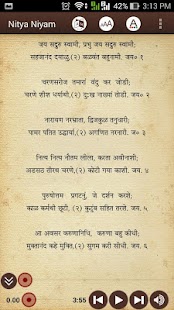 3:13 PM
Nitya Niyam
जय सद्गुरु स्वामी, प्रभु जय सद्गुरु स्वामी;
सहजानंद दयाळु, (२) बळवंत बहुनामी. जय० १
चरणसरोज तमारां वंदु कर जोडी;
चरणे शीश धर्याथी, (२) दुःख नाख्यां तोडी. जय० २
नारायण नरभ्राता, द्विजकुळ तनुधारी;
पामर पतित उद्धार्या, (२) अगणित नरनारी. जय० ३
नित्य नित्य नौतम लीला, करता अविनाशी;
अडसठ तीरथ चरणे, (२) कोटी गया काशी. जय० ४
पुरुषोत्तम प्रगटनुं, जे दर्शन करशे;
काळ कर्मथी छूटी, (२) कुटुंब सहित तरशे. जय० ५
आ अवसर करुणानिधि, करुणा बहु कीधी;
मुक्तानंद कहे मुक्ति,(२) सुगम करी सीधी. जय० ६
0.00
3:55